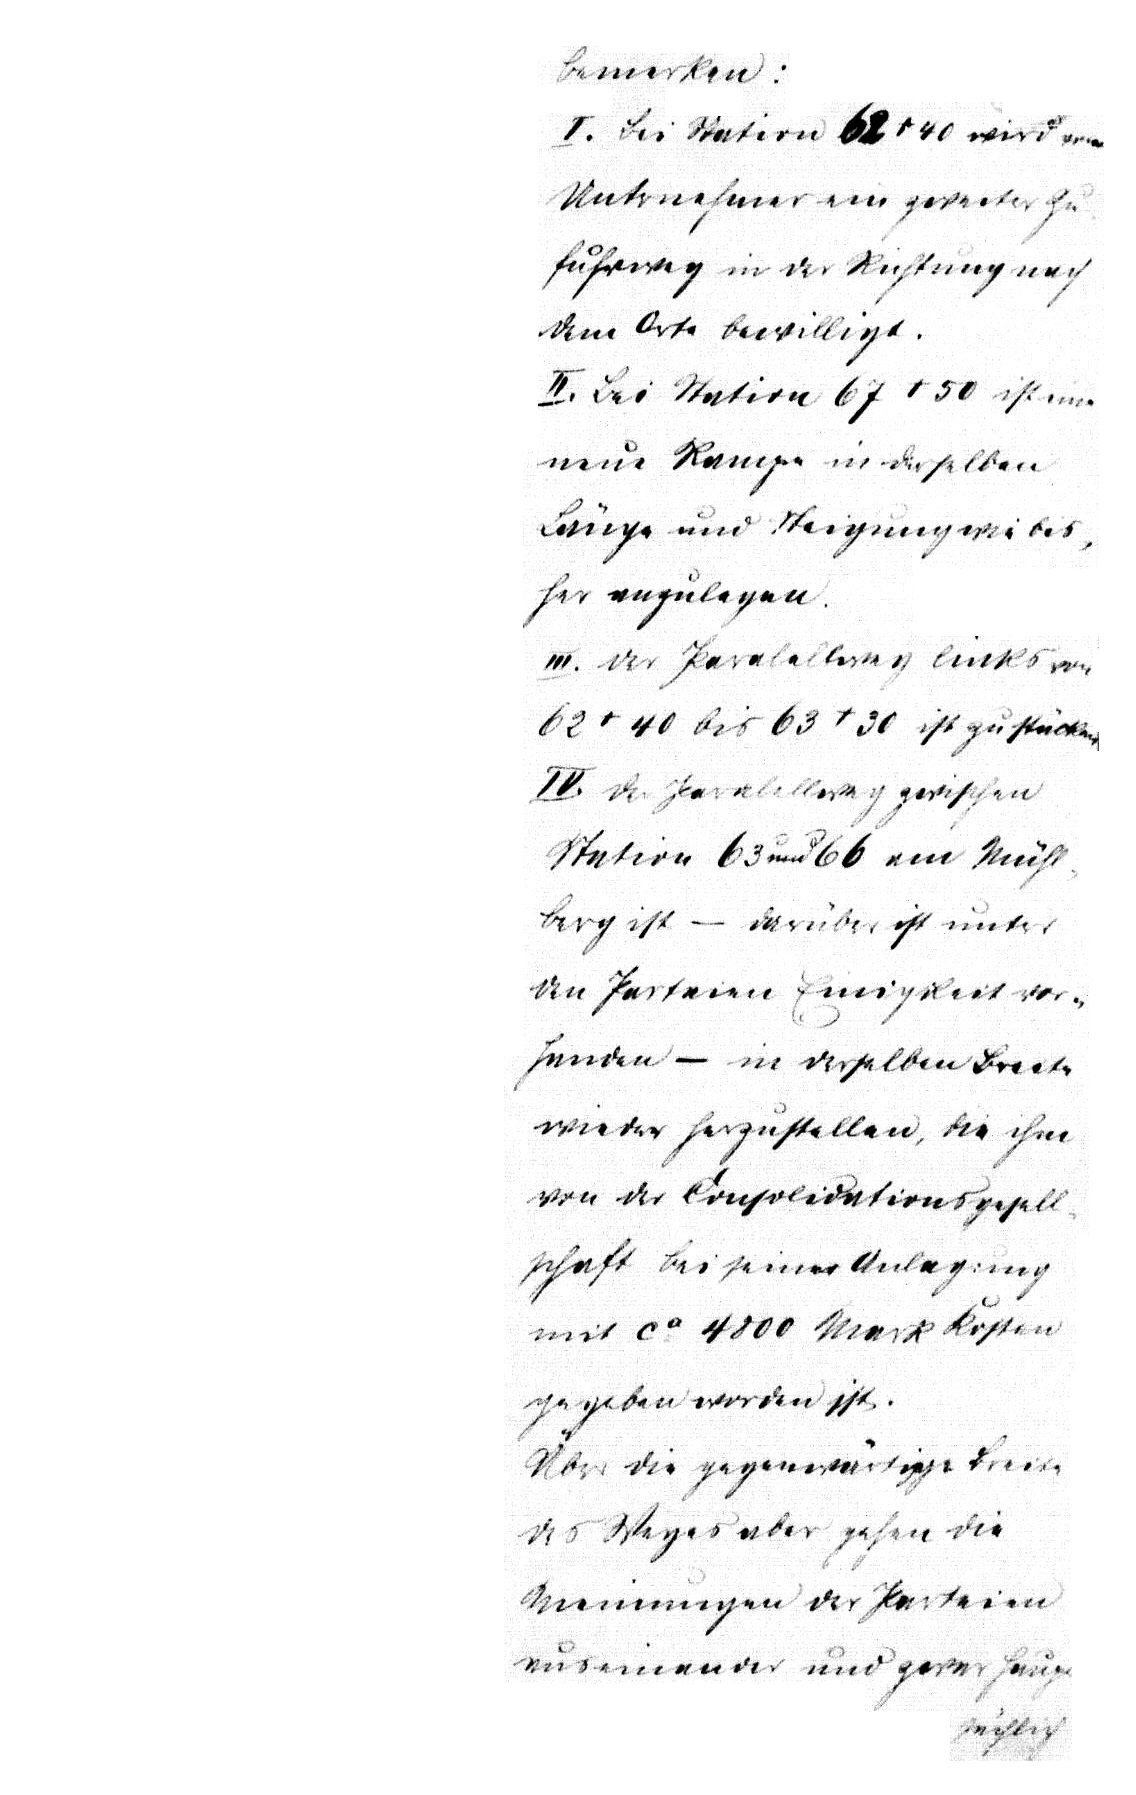 bemerken:
I. Bei Station 62 + 40 wird vom
Unternehmer ein zweiter Zu
fuhrweg in der Richtung nach
dem Orte bewilligt.
II. Bei Station 67 + 50 ist eine
neue Rampe in derselben
Länge und Steigung wie bis-
her anzulegen.
III. der Paralellweg links von
62 + 40 bis 63 + 30 ist zu stücken
IV. der Paralellweg zwischen
Station 63 und 66 am Mühl-
berg ist — darüber ist unter
den Parteien Einigkeit vor-
handen — in derselben Breite
wieder herzustellen, die ihm
von der Consolidationsgesell-
schaft bei seiner Anlegung
mit ca 4800 Mark Kosten
gegeben worden ist.
Über die gegenwärtige Breite
des Weges aber gehen die
Meinungen der Parteien
auseinander und zwar haupt
sächlich